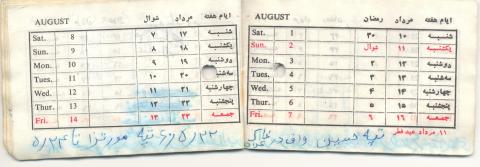 AUGUST شوال مرداد ایام هفته
Sat. 8 ۷ ۱۷ شنبه
Sun. 9 ۸ ۱۸ یکشنبه
Mon. 10 ۹ ۱۹ دوشنبه
Tues. 11 ۱۰ ۲۰ سه‌شنبه
Wed. 12 ۱۱ ۲۱ چهارشنبه
Thur. 13 ۱۲ ۲۲ پنجشنبه
Fri. 14 ۱۳ ۲۳ جمعه
۵/۲۲ تپه تا ۵/۲۴
AUGUST رمضان مرداد ایام هفته
Sat. 1 ۳۰ ۱۰ شنبه
Sun. 2 شوال ۱۱ یکشنبه
Mon. 3 ۲ ۱۲ دوشنبه
Tues. 4 ۳ ۱۳ سه‌شنبه
Wed. 5 ۴ ۱۴ چهارشنبه
Thur. 6 ۵ ۱۵ پنجشنبه
Fri. 7 ۶ ۱۶ جمعه
۱۱ مرداد عید فطر
تپه حسین واقع در خاک عراق